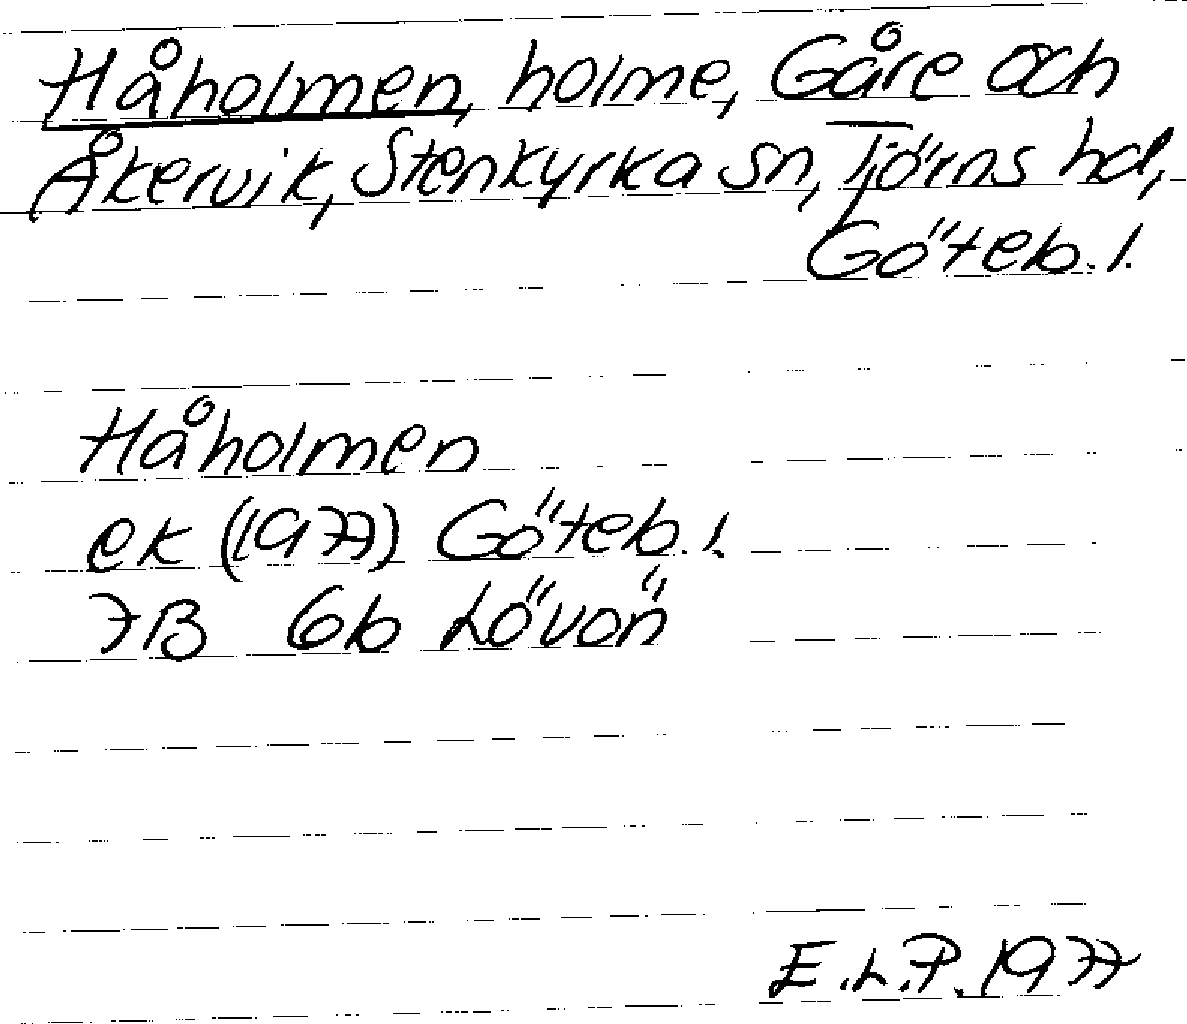 Håholmen, holme, Gåre och
Åkervik, Stenkyrka sn, Tjörns hd,
Göteb. l.
Håholmen
ek (1977) Göteb. l.
7B 6b Lövön
E.L.P. 1977